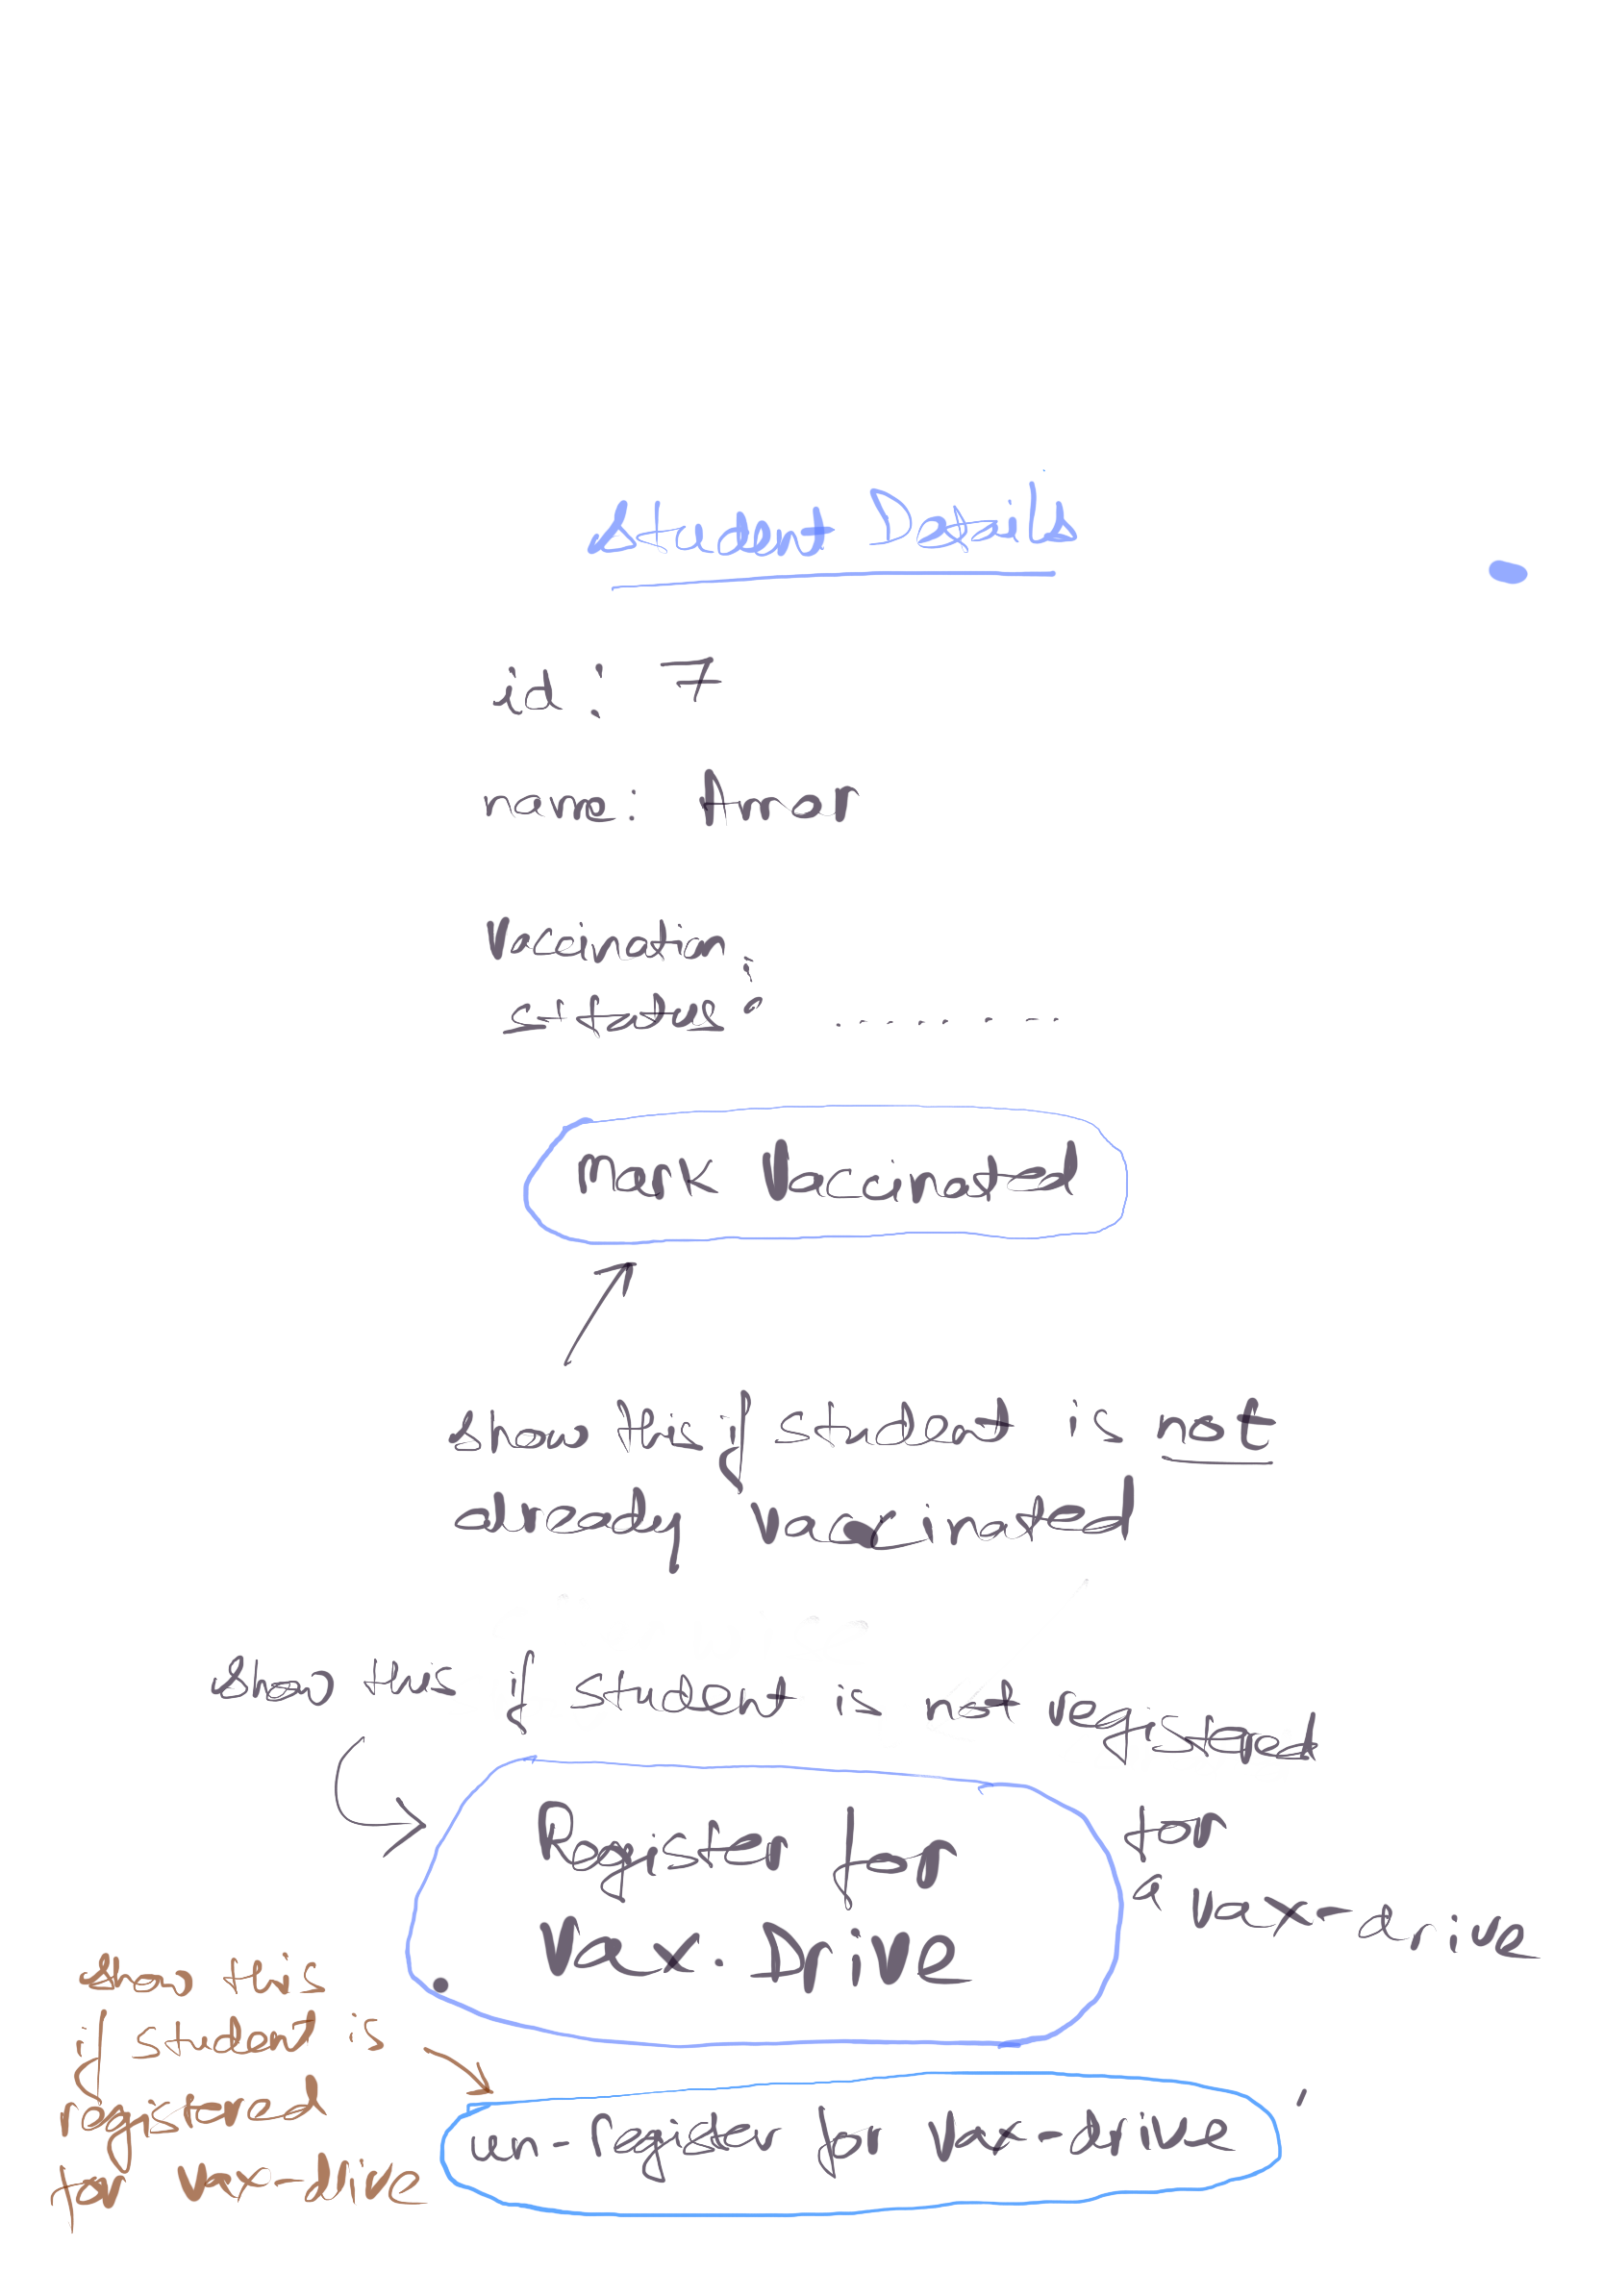 Student Details
id: 7
name: Amar
Vaccination
status: ........
Mark Vaccinated
show this if student is not
already vaccinated
show this if student is not registered
for
a vax-drive
Register for
Vax. Drive
show this
if student is
registered
for vax-drive
un-register for vax-drive